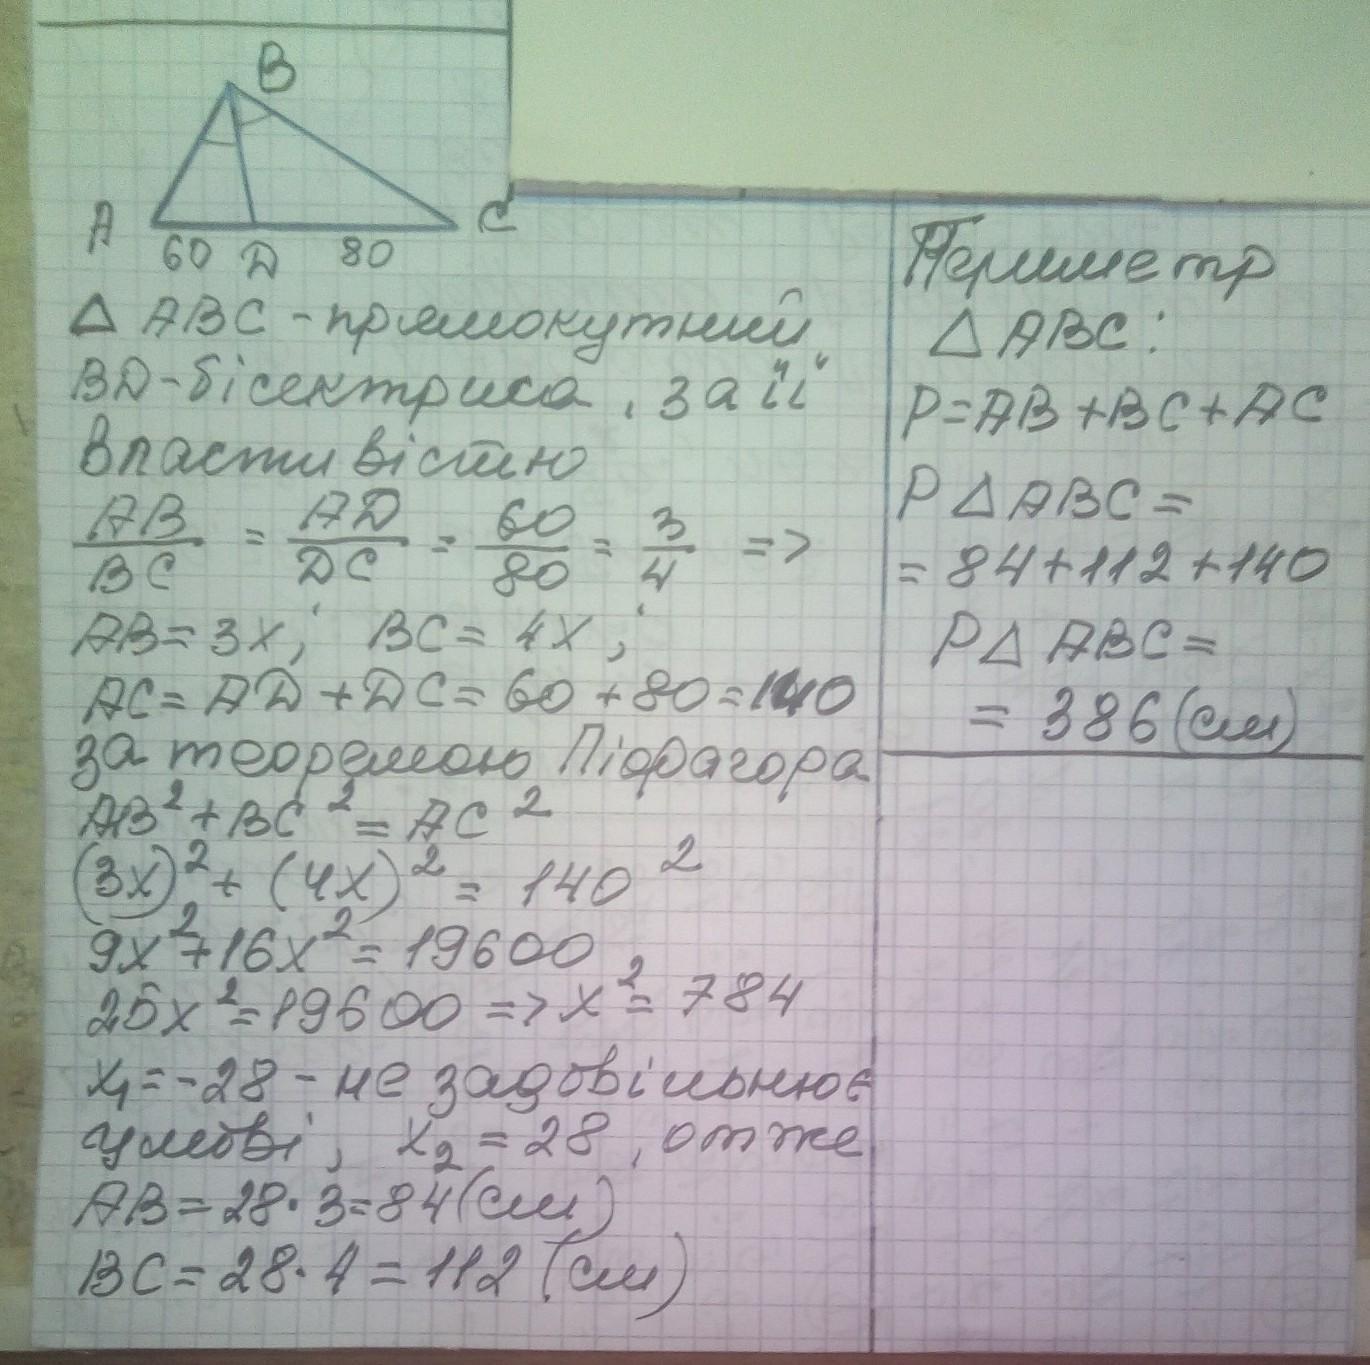 B
A 60 D 80 C
△ ABC - прямокутний
BD - бісектриса, за її
властивістю
AB/BC = AD/DC = 60/80 = 3/4 =>
AB = 3x; BC = 4x;
AC = AD + DC = 60 + 80 = 140
за теоремою Піфагора
AB² + BC² = AC²
(3x)² + (4x)² = 140²
9x² + 16x² = 19600
25x² = 19600 => x² = 784
x₁ = -28 - не задовільнює
умові, x₂ = 28, отже
AB = 28·3 = 84 (см)
BC = 28·4 = 112 (см)
Периметр
△ ABC:
P = AB + BC + AC
P △ ABC =
= 84 + 112 + 140
P △ ABC =
= 386 (см)